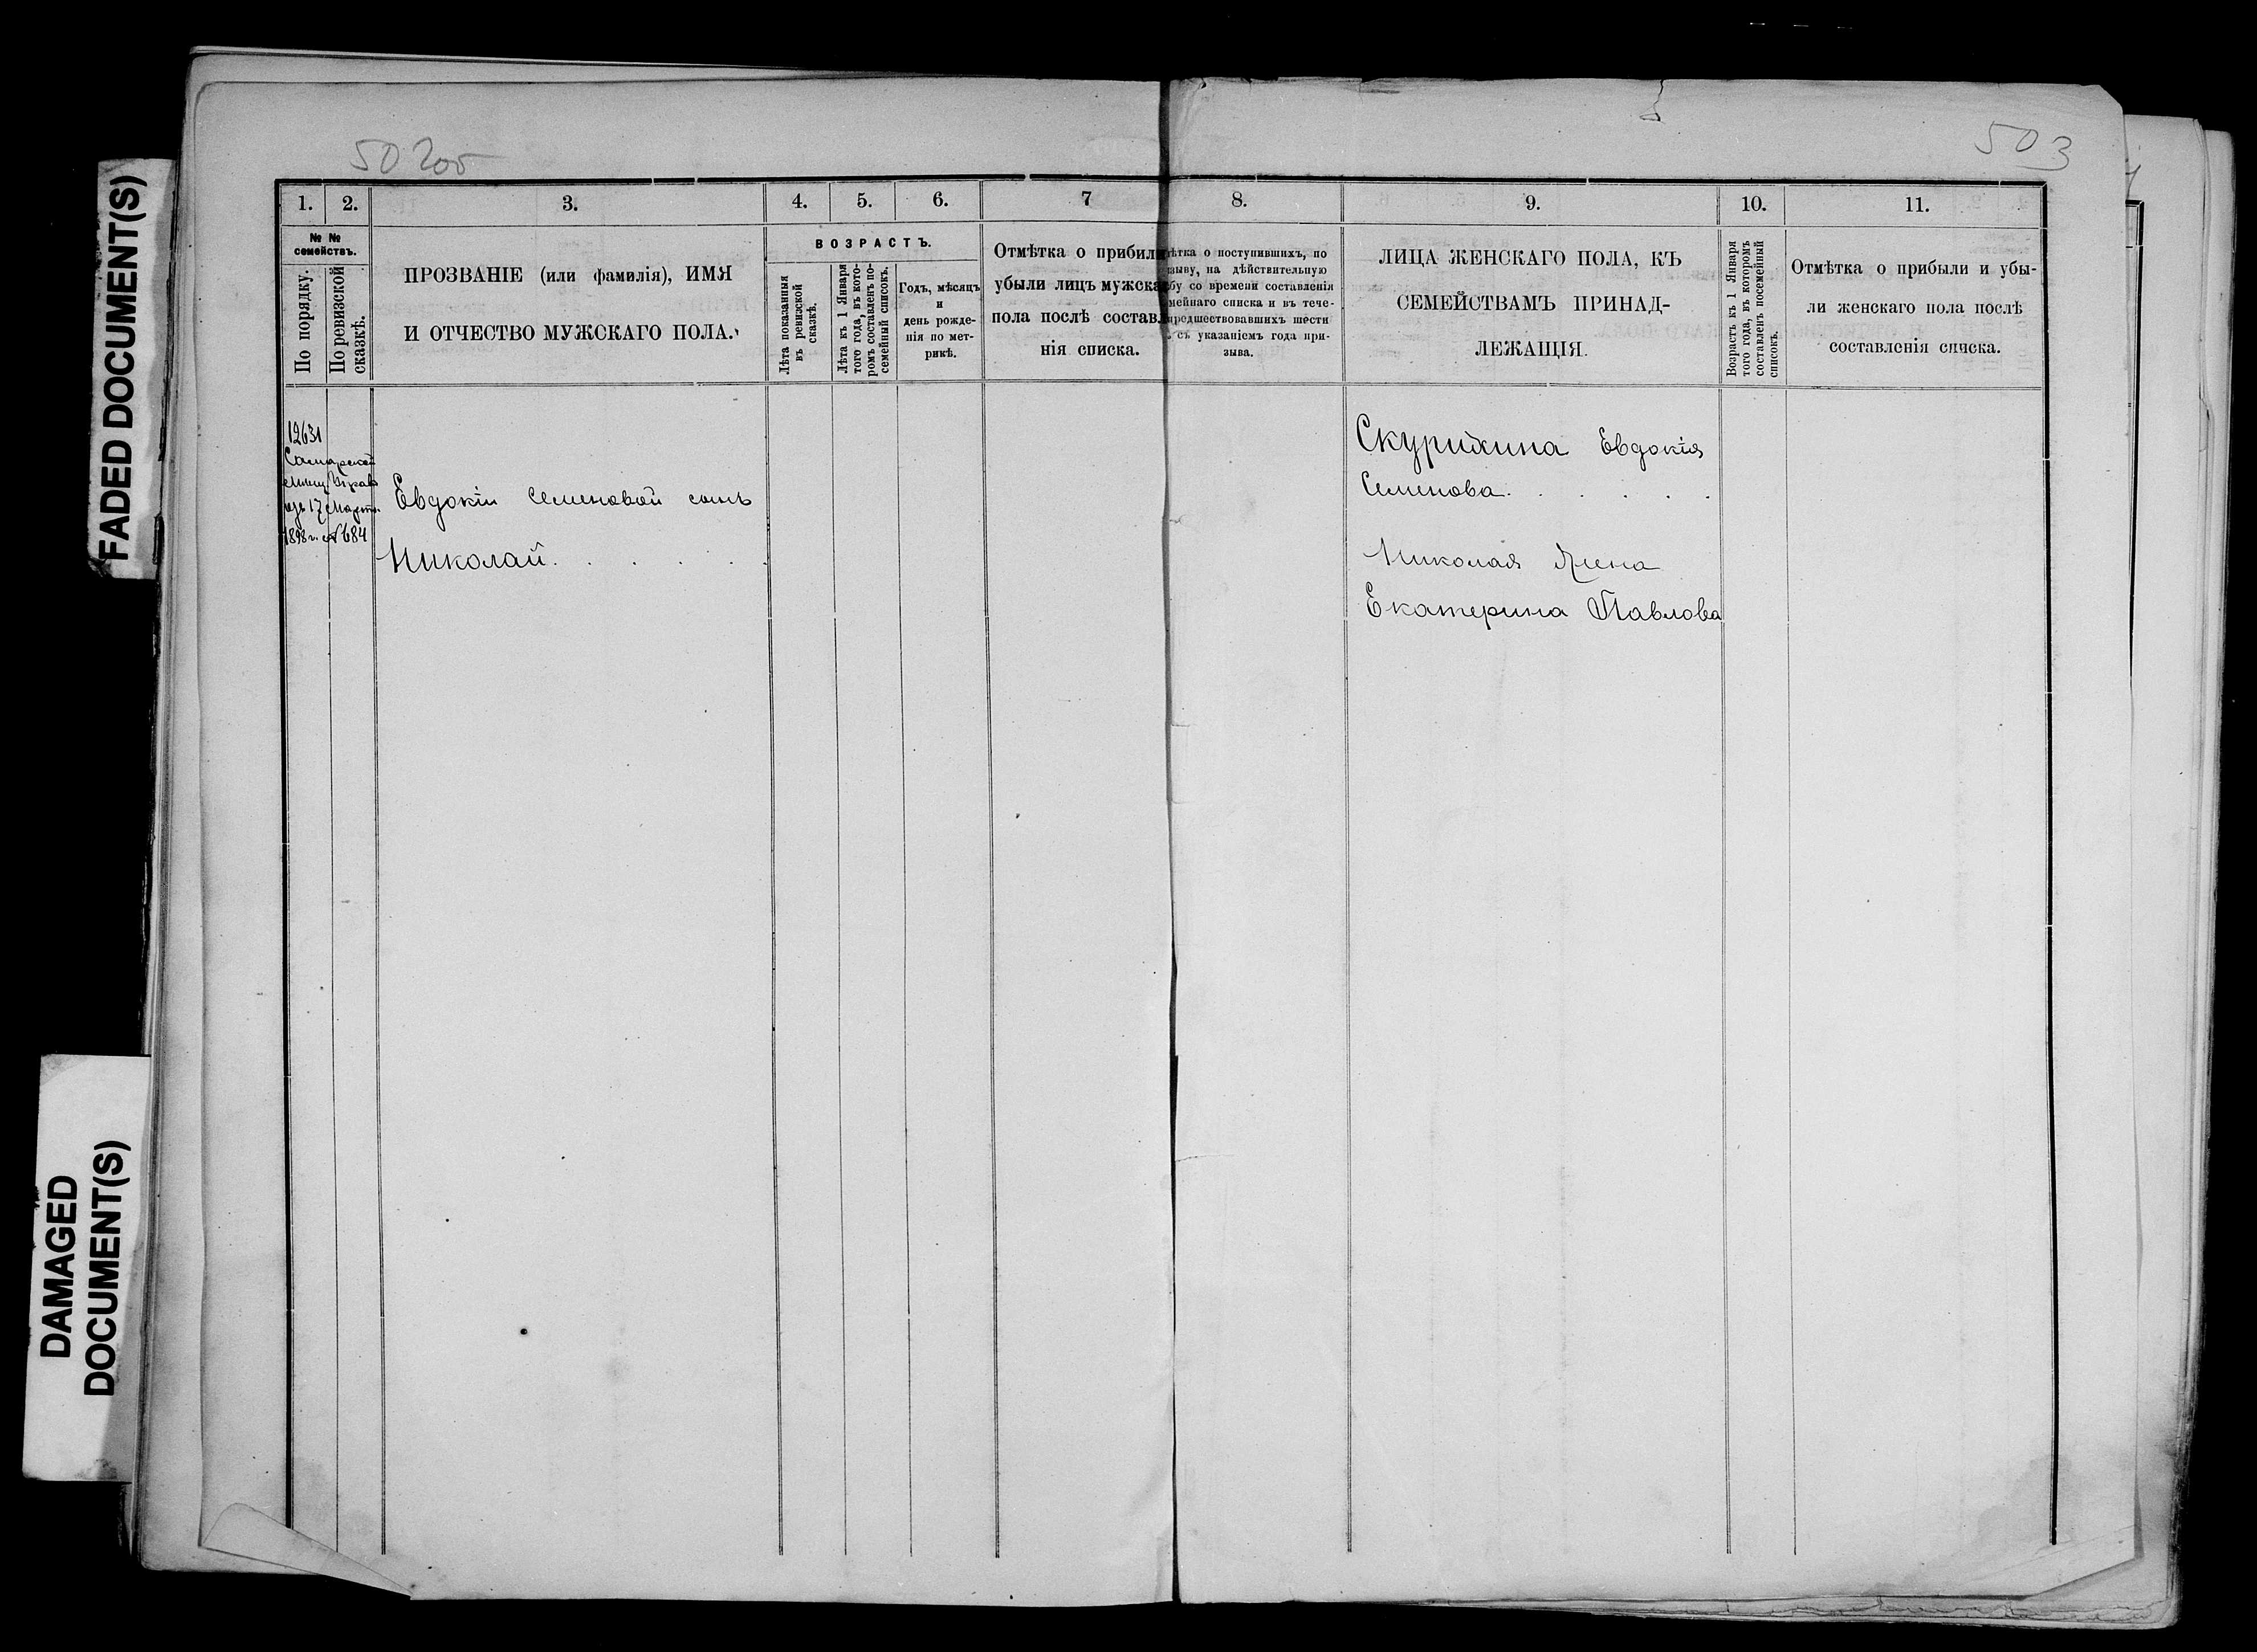 FADED DOCUMENT(S)
DAMAGED
DOCUMENT(S)
50 2об
503
1.
2.
3.
4.
5.
6.
7
8.
9.
10.
11.
№ №
семействъ.
По порядку.
По ревизской
сказкѣ.
ПРОЗВАНІЕ (или фамилія), ИМЯ
И ОТЧЕСТВО МУЖСКАГО ПОЛА.
ВОЗРАСТЪ.
Лѣта показанныя
въ ревизской
сказкѣ.
Лѣта къ 1 Января
того года, въ кото-
ромъ составленъ по-
семейный списокъ.
Годъ, мѣсяцъ
и
день рожде-
нія по мет-
рикѣ.
Отмѣтка о прибили
убыли лицъ мужска
пола послѣ составл
нія списка.
ѣтка о поступившихъ, по
зыву, на дѣйствительную
бу со времени составленія
мейнаго списка и въ тече-
предшествовавшихъ шести
съ указаніемъ года при-
зыва.
ЛИЦА ЖЕНСКАГО ПОЛА, КЪ
СЕМЕЙСТВАМЪ ПРИНАД-
ЛЕЖАЩІЯ.
Возрастъ къ 1 Января
того года, въ которомъ
составленъ посемейный
списокъ.
Отмѣтка о прибыли и убы-
ли женскаго пола послѣ
составленія списка.
12631
Самарской
Мѣщ. Управ
отъ 17 Марта
1898 г. № 684
Евдокіи Семеновой сынъ
Николай . . . . .
Скурихина Евдокія
Семенова . . . . .
Николая жена
Екатерина Павлова